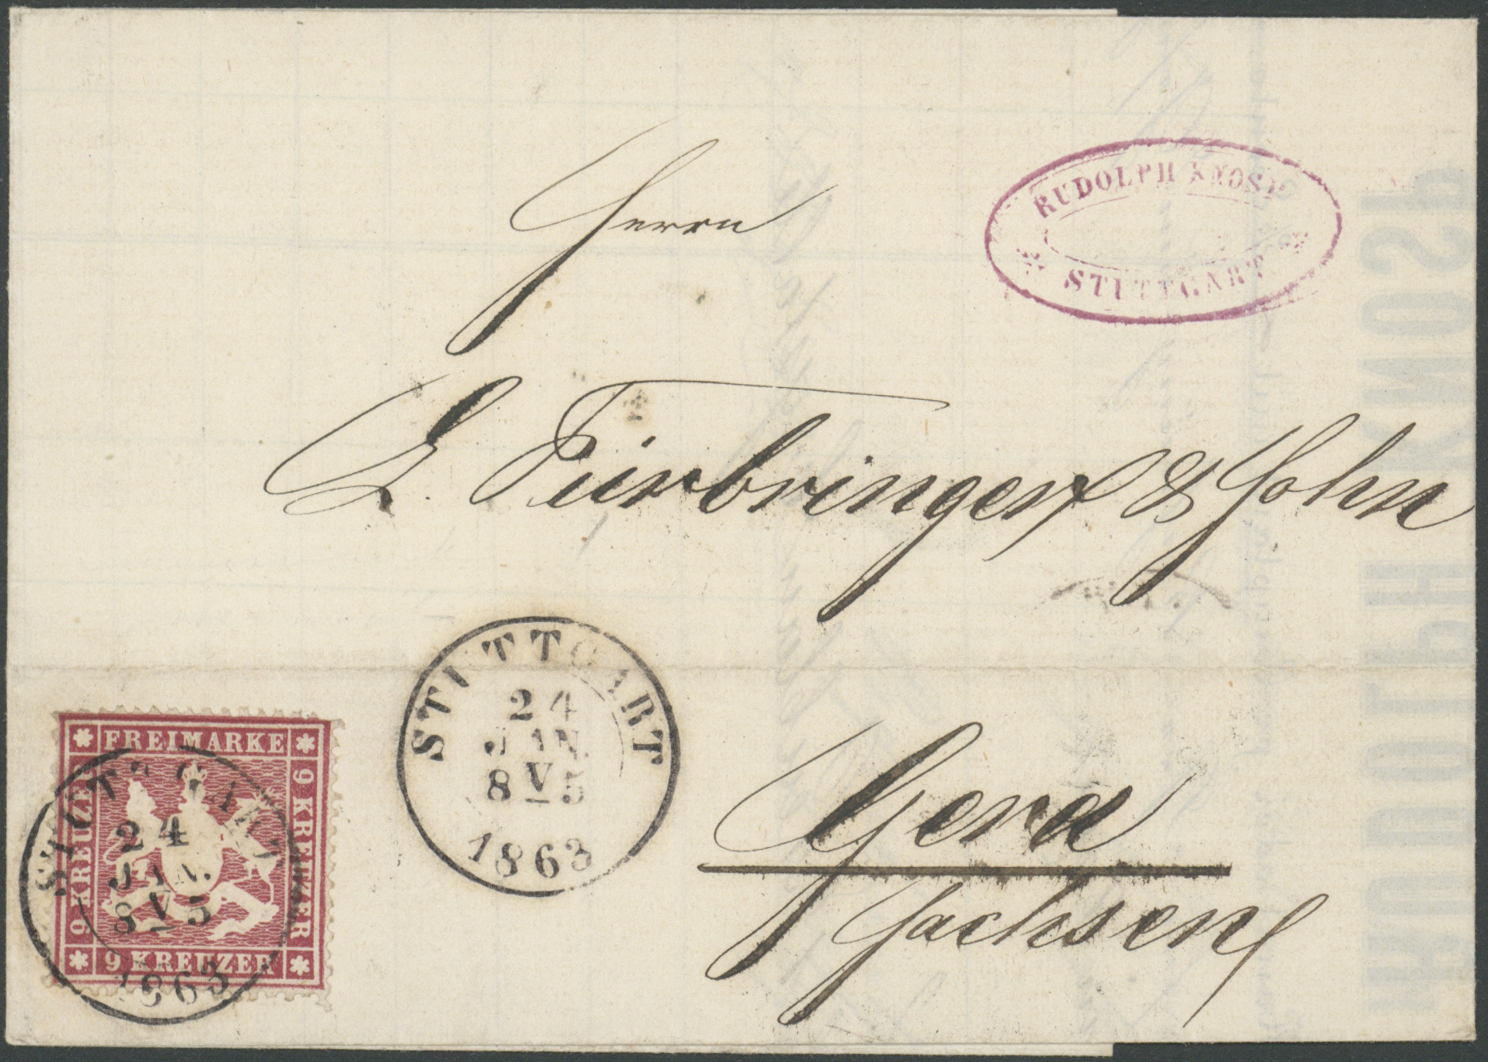 RUDOLPH KNOSP
STUTTGART
Herrn
L. Fürbringer & John
Gera
Sachsen
STUTTGART
24
JAN.
8 V 5
1863
FREIMARKE
9 KREUZER
9 KREUZER
9 KREUZER
STUTTGART
24
JAN.
8 V 5
1863
RUDOLPH KNOSP